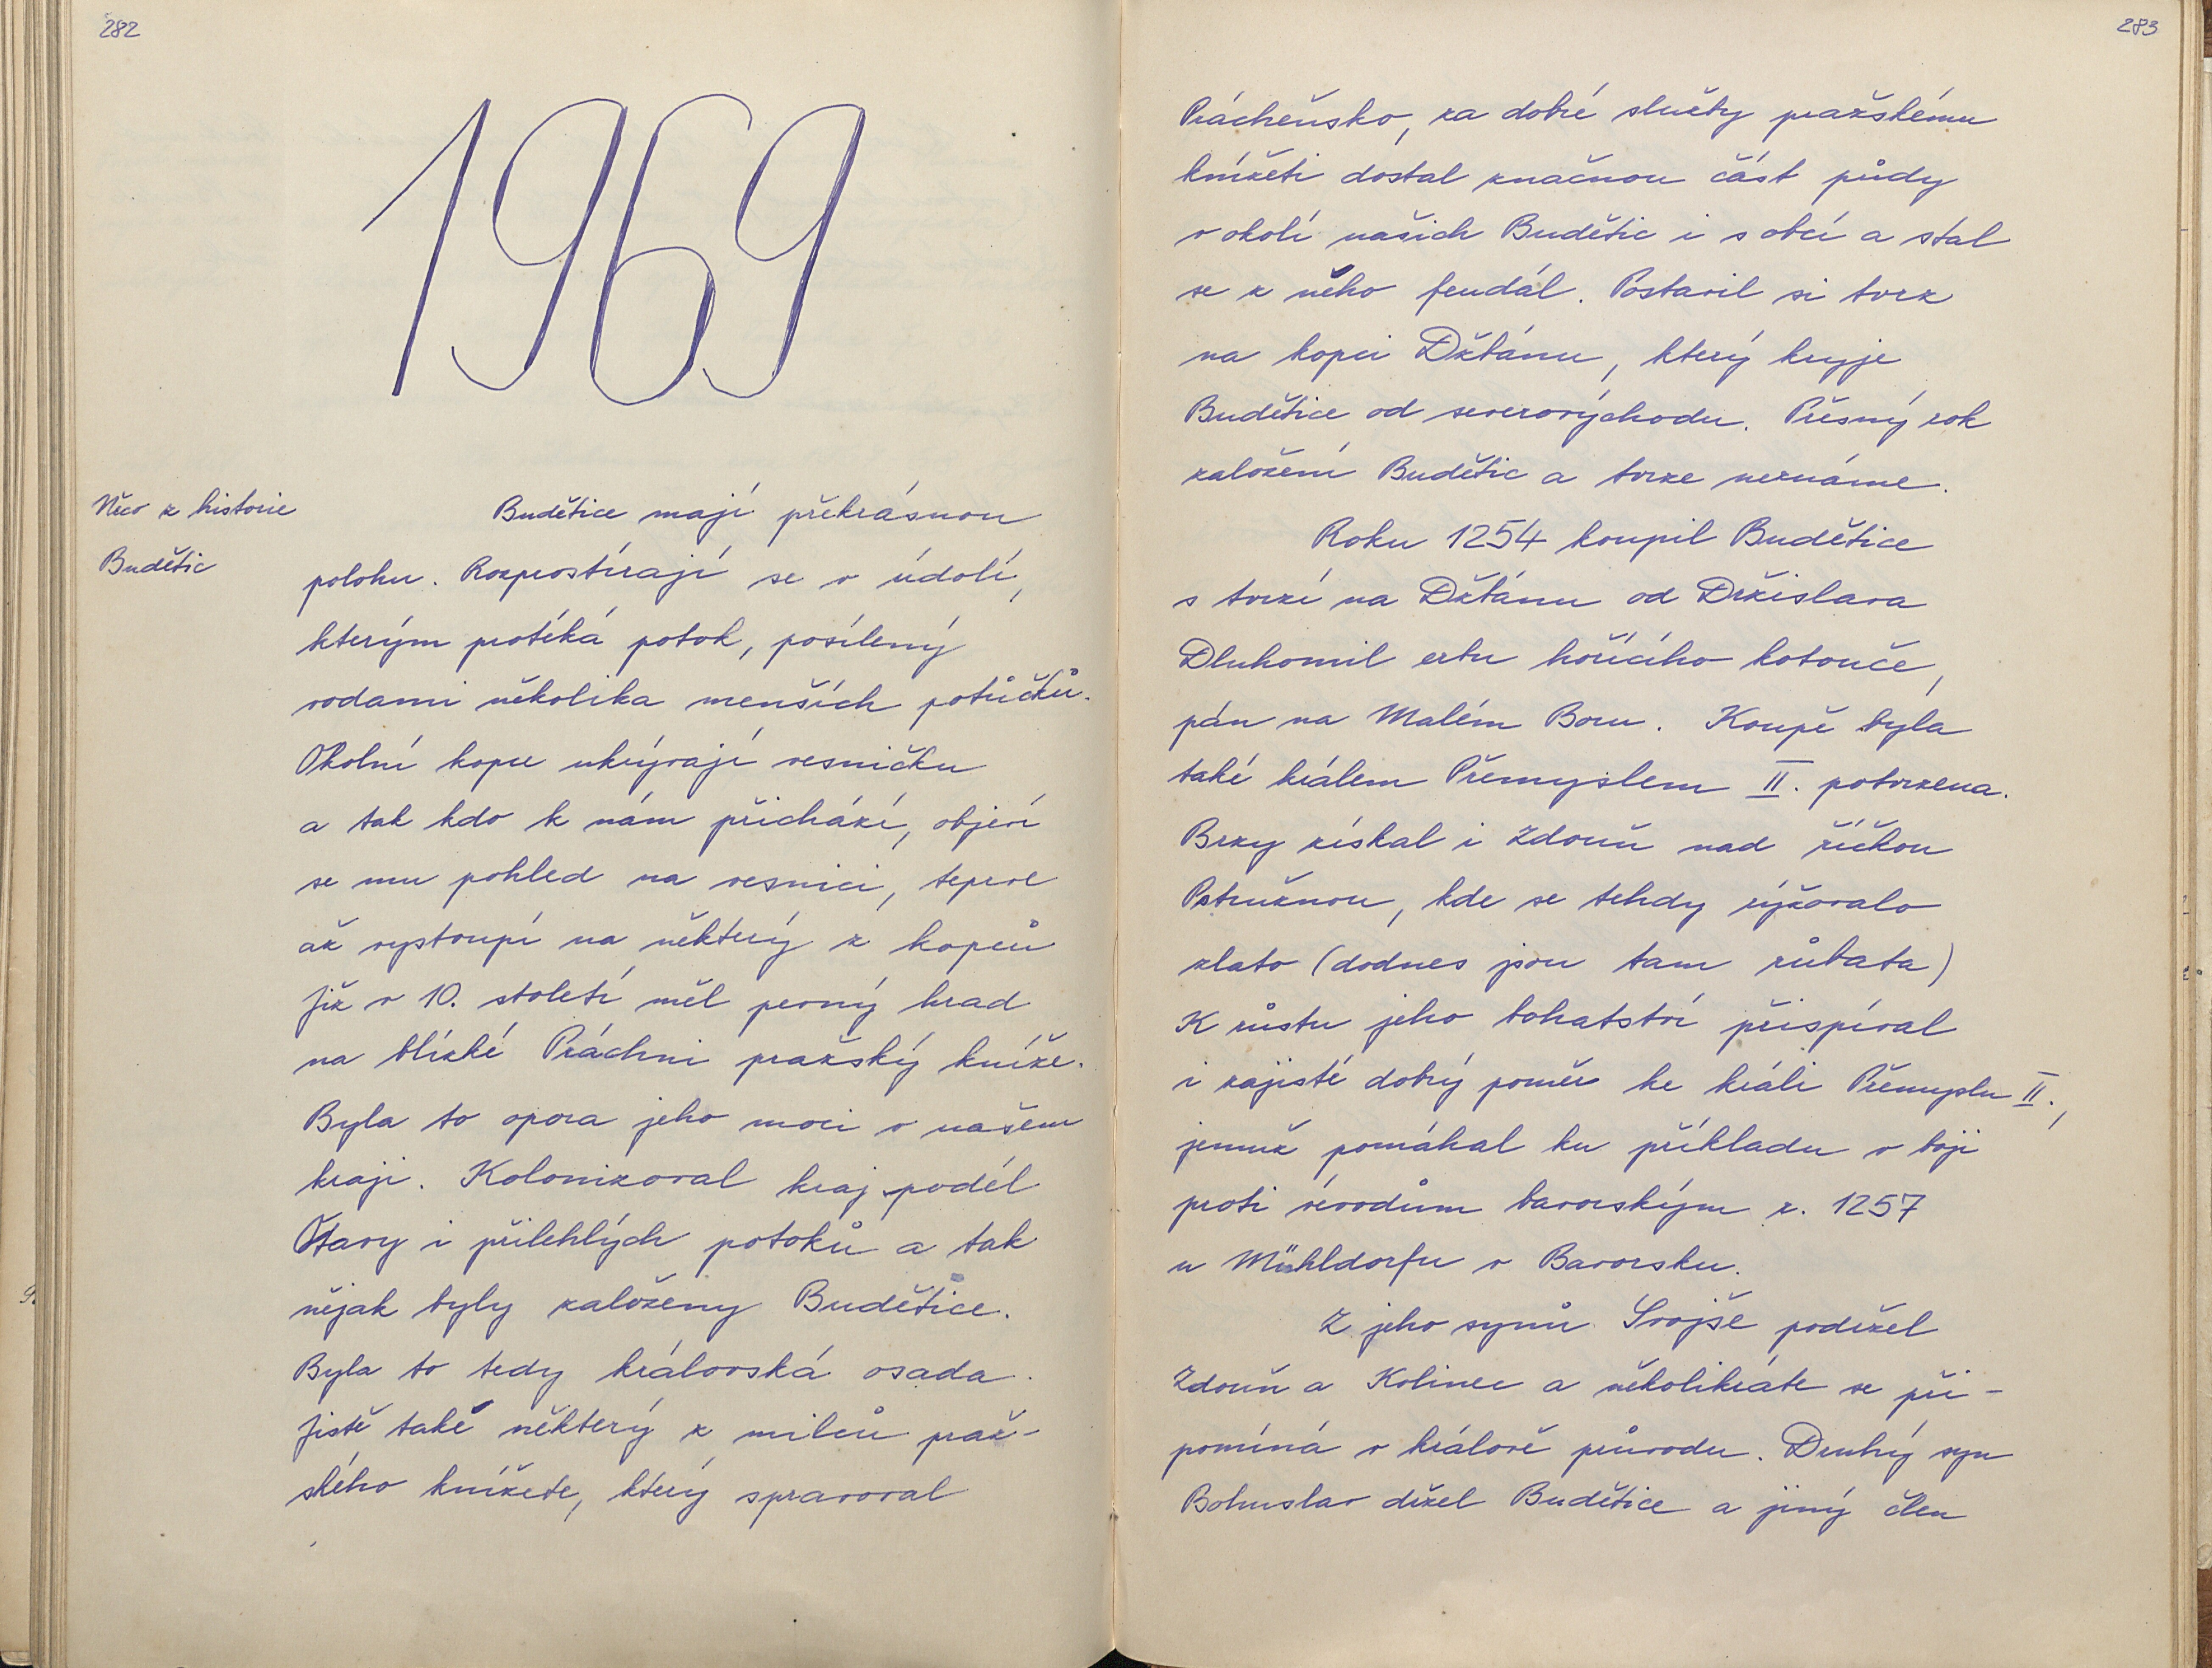 282
1969
Něco z historie
Budětic
Budětice mají překrásnou
polohu. Rozprostírají se v údolí,
kterým protéká potok, posílený
vodami několika menších potůčků.
Okolní kopce ukrývají vesničku
a tak kdo k nám přichází, objeví
se mu pohled na vesnici, teprve
až vystoupí na některý z kopců
Již v 10. století měl pevný hrad
na blízké Práchni pražský kníže.
Byla to opora jeho moci v našem
kraji. Kolonizoval kraj podél
Otavy i přilehlých potoků a tak
nějak byly založeny Budětice.
Byla to tedy královská osada.
Jistě také některý z milců praž-
ského knížete, který spravoval
283
Prácheňsko, za dobré služby pražskému
knížeti dostal značnou část půdy
v okolí našich Budětic i s obcí a stal
se z něho feudál. Postavil si tvrz
na kopci Džbánu, který kryje
Budětice od severovýchodu. Přesný rok
založení Budětic a tvrze neznáme.
Roku 1254 koupil Budětice
s tvrzí na Džbánu od Držislava
Dluhomil erbu hořícího kotouče,
pán na Malém Boru. Koupě byla
také králem Přemyslem II. potvrzena.
Brzy získal i Zdouň nad říčkou
Pstružnou, kde se tehdy rýžovalo
zlato (dodnes jsou tam růbata)
K růstu jeho bohatství přispíval
i zajisté dobrý poměr ke králi Přemyslu II.,
jemuž pomáhal ku příkladu v boji
proti vévodům bavorským r. 1257
u Mühldorfu v Bavorsku.
Z jeho synů Svojše podržel
Zdouň a Kolinec a několikráte se při-
pomíná v králově průvodu. Druhý syn
Bohuslav držel Budětice a jiný člen